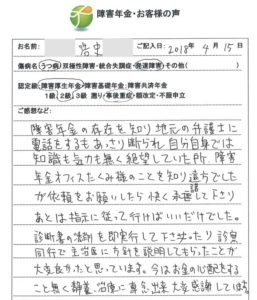 障害年金・お客様の声
お名前: 浩史 ご記入日: 2018年 4月 15日
傷病名(うつ病) 双極性障害・統合失調症・発達障害・その他( )
認定級 障害厚生年金・障害基礎年金・障害共済年金
1級、2級、3級 遡り・事後重症・額改定・不服申立
ご感想など:
障害年金の存在を知り地元の弁護士に
電話をするもあっさり断られ、自分自身では
知識も気力も無く絶望していた所、障害
年金オフィスたくみ様のことを知り遠方でした
が依頼をお願いしたら快く承諾して下さり
あとは指示に従って行けばいいだけでした。
診断書の添削を即実行して下さったり 診察
同行で主治医に方針を説明してもらったことが
大きかったと思っています。今はお金の心配をする
こと無く静養、治療に専念出来大変感謝しています。